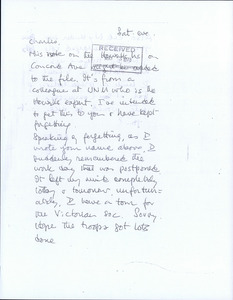 Sat eve.
Charlie
RECEIVED
This note on the Howells' he on
Concord Ave might be added
to the file. It's from a
colleague at UNH who is the
Howells expert. I've intended
to get this to you & have kept
forgetting
Speaking of forgetting, as I
wrote your name above, I
suddenly remembered the
work day that was postponed
It left my mind completely
today & tomorrow, unfortun-
ately, I have a tour for
the Victorian Soc. Sorry.
Hope the troops got lots
done